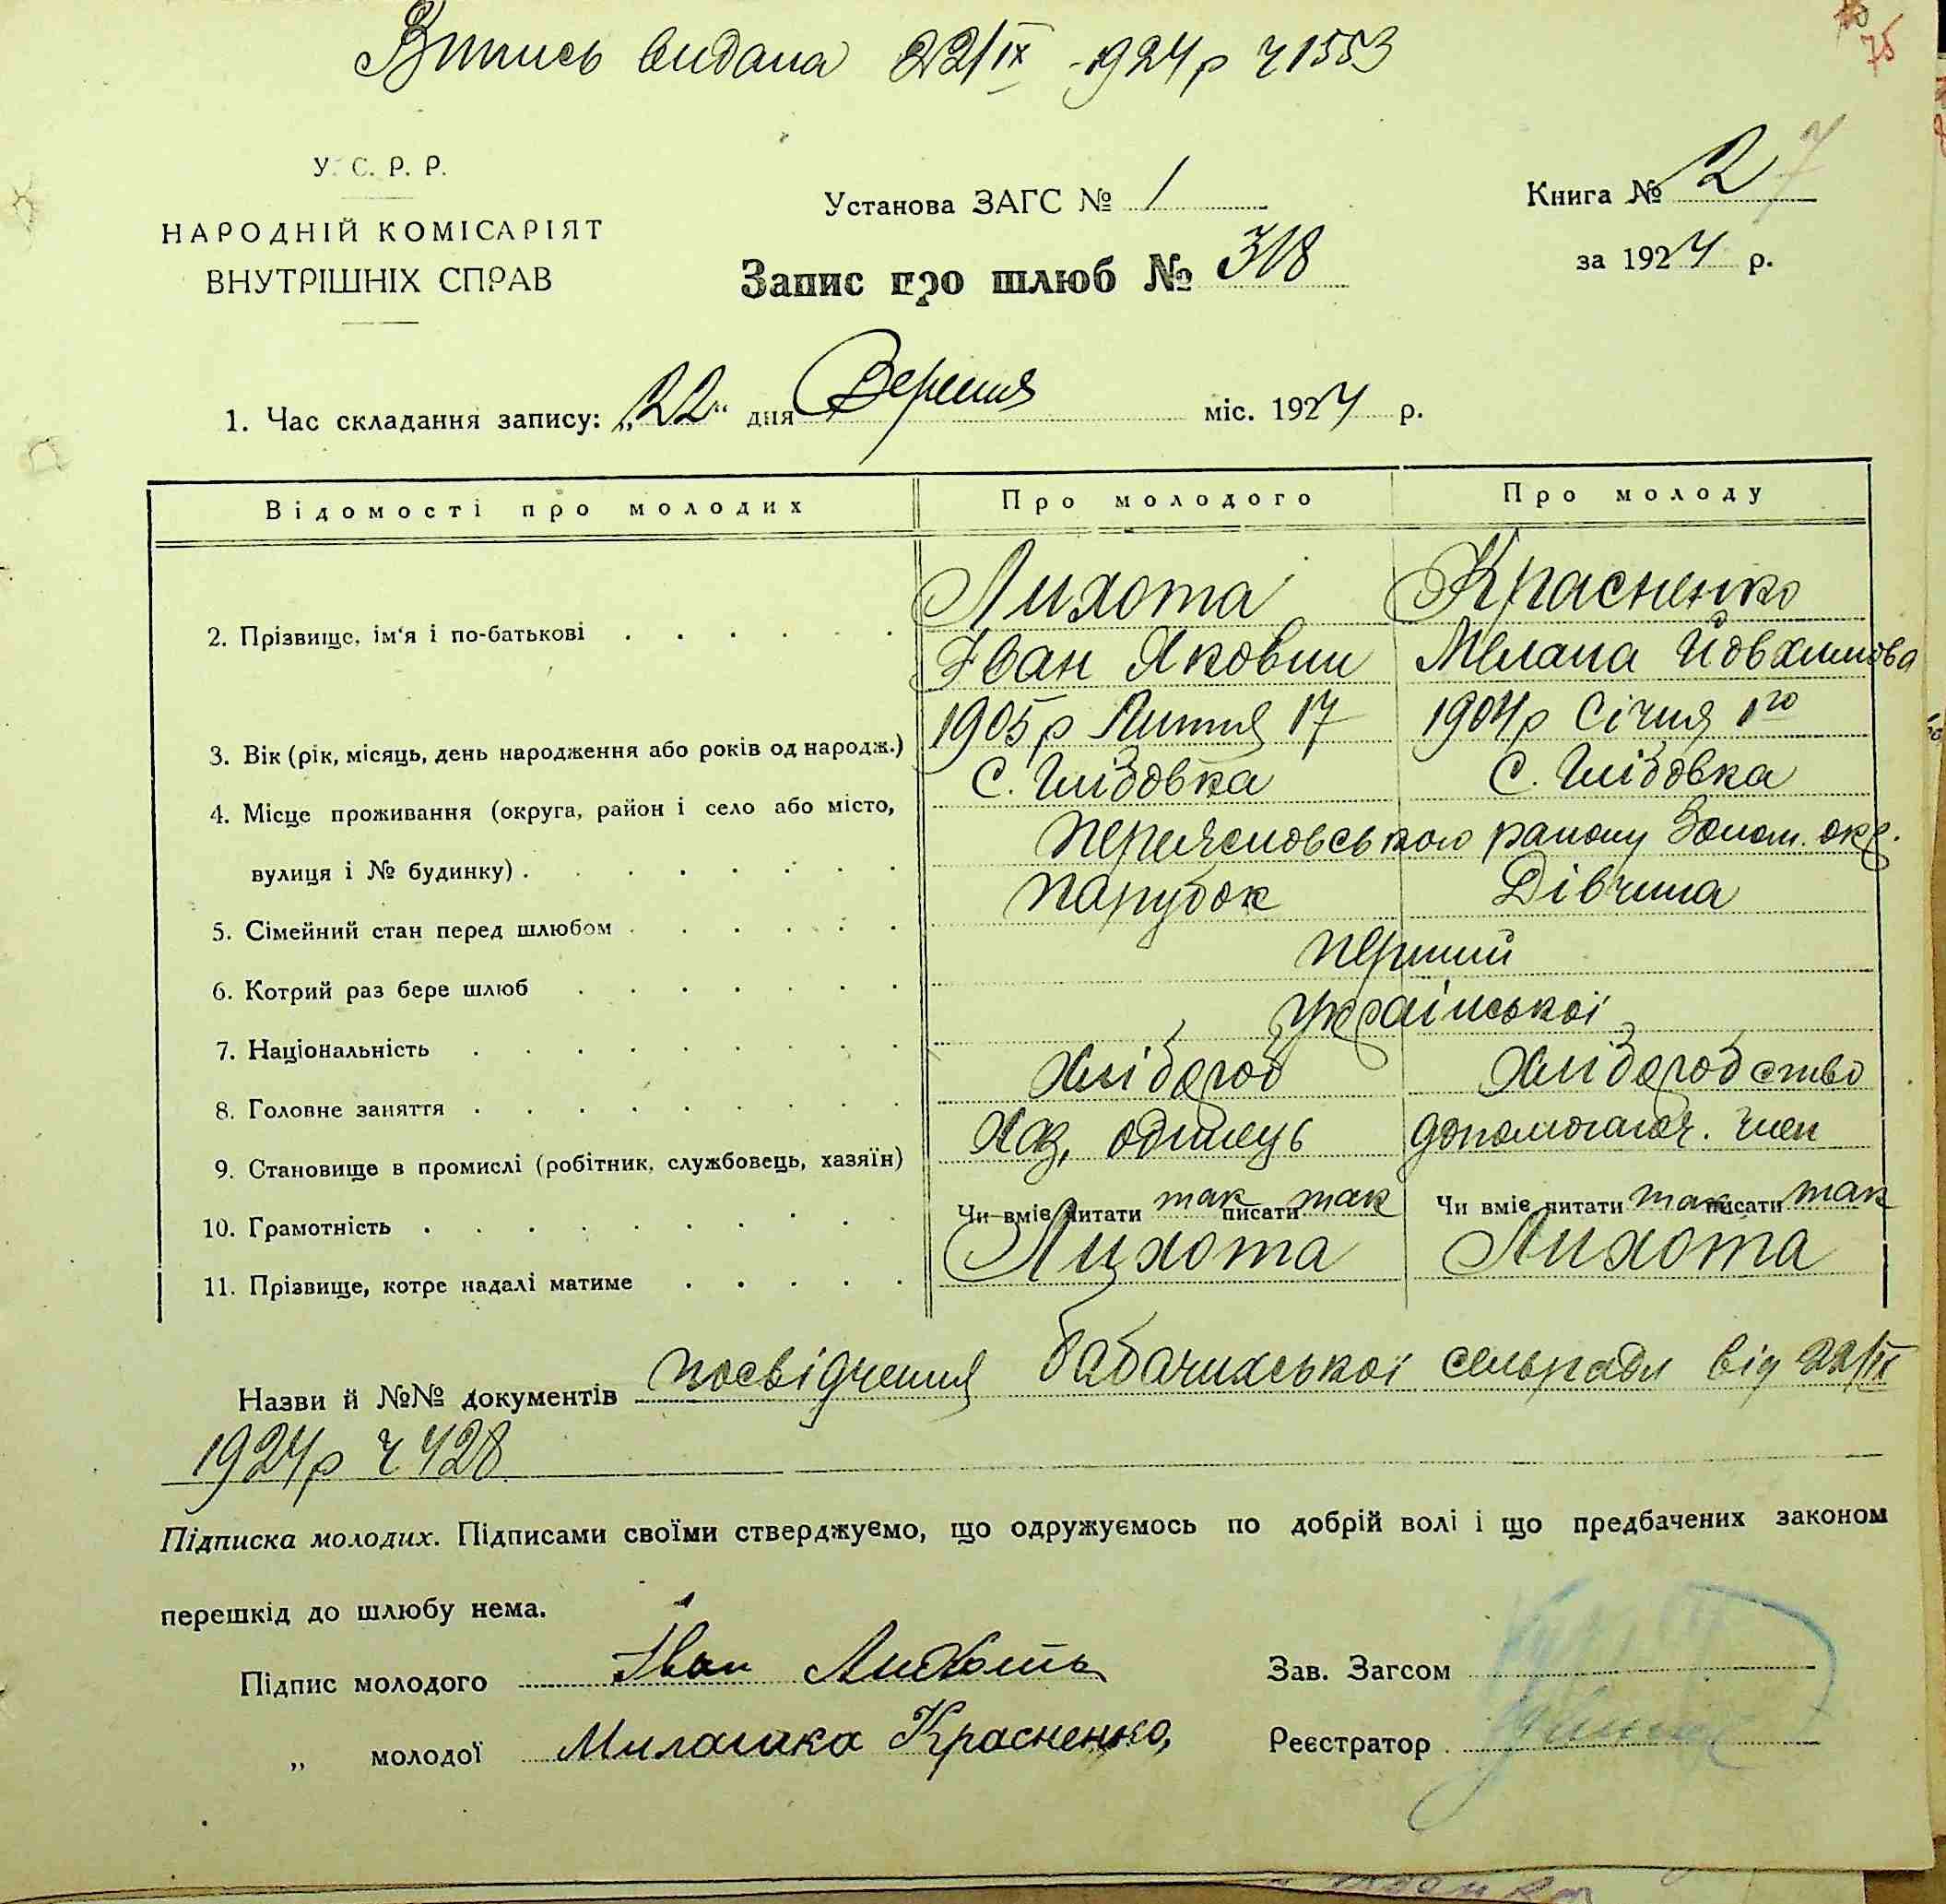 Витись видана 22/IX -1924р ч 1553
75
У. С. Р. Р.
НАРОДНІЙ КОМІСАРІЯТ
ВНУТРІШНІХ СПРАВ
Установа ЗАГС № 1
Запис про шлюб № 318
Книга № 2 7
за 1924 р.
1. Час складання запису: „22" дня Вересня міс. 1924 р.
Відомості про молодих Про молодого Про молоду
2. Прізвище, ім'я і по-батькові Лихота Красненко
Іван Якович Мелана Йовхимова
3. Вік (рік, місяць, день народження або років од народж.) 1905р Липня 17 1904р Січня 1го
4. Місце проживання (округа, район і село або місто, С. Глібовка С. Глібовка
вулиця і № будинку) Переясловського району Золот. окр.
5. Сімейний стан перед шлюбом парубок Дівчина
6. Котрий раз бере шлюб перший
7. Національність Української
8. Головне заняття Хлібороб Хлібробство
9. Становище в промислі (робітник, службовець, хазяїн) Хаз. одинець допомогаюч. член
10. Грамотність Чи вміє читати так писати так Чи вміє читати так писати так
11. Прізвище, котре надалі матиме Лихота Лихота
Назви й №№ документів посвідчення Бабачихської сельради від 22/IX
1924р ч 428
Підписка молодих. Підписами своїми стверджуємо, що одружуємось по добрій волі і що предбачених законом
перешкід до шлюбу нема.
Підпис молодого Іван Лихоть
Зав. Загсом
„ молодої Милашка Красненко,
Реєстратор